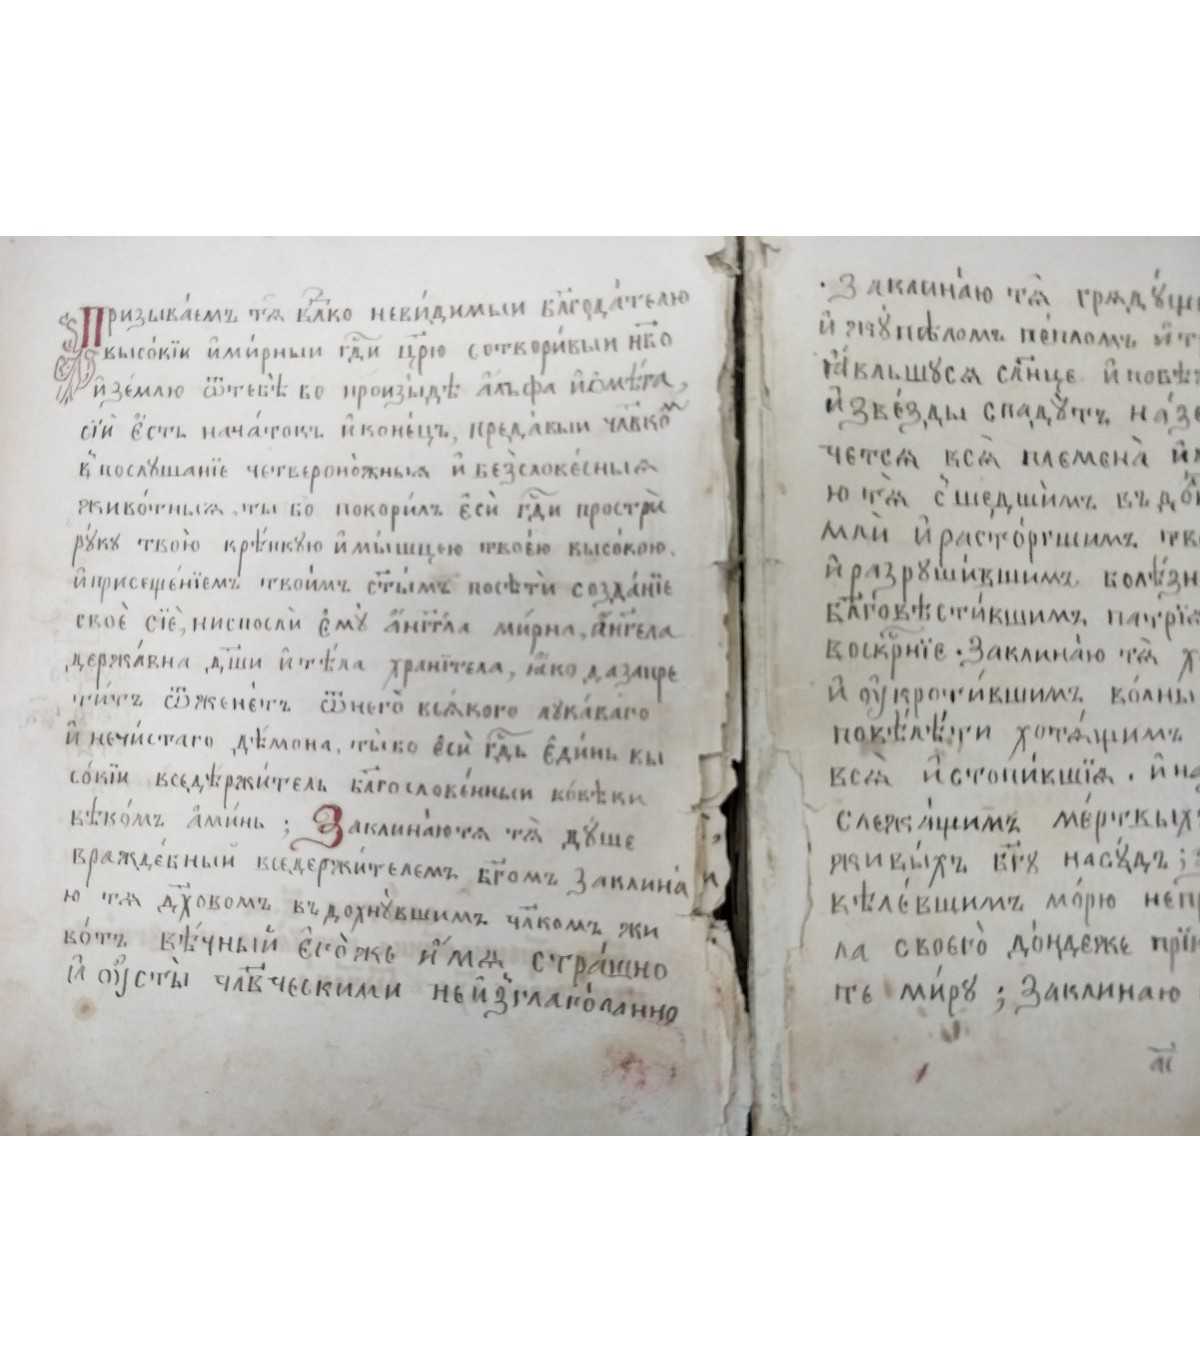 Призыва́емъ тѧ̀ влⷣко неви́димыи бл҃года́телю
высо́кїи и҆ми́рныи гдⷭ҇и цр҃ю сотвори́выи нб҃о
и҆зе́млю ѿтебѣ̀ бо произы́дѣ а҆́льфа и҆ѡ҆ме́га,
сїй є҆́сть нача́токъ и҆коне́цъ, преда́выи чл҃вкоⷨ
в̾послушанїе четвероно́жныѧ и҆ без̾слове́сныѧ
живо́тныѧ. ты̀ бо покори́лъ є҆сѝ гдⷭ҇и прострѝ
ру́ку твою̀ крѣ́пкую и҆мы́шцею твое́ю высо́кою.
и҆присеще́нїемъ твои́мъ ст҃ы́мъ посѣтѝ созда́нїе
своѐ сїѐ, ниспослѝ є҆мꙋ̀ а҆́нгг҃ла ми́рна, а҆́нгела
держа́вна дш҃и и҆тѣ́ла храни́тела, ꙗ҆́ко дазапре
ти́тъ ѿжене́тъ ѿнего̀ всѧ́кого лука́ваго
и҆ нечи́стаго де́мона. ты̀бо є҆сѝ гдⷭ҇ь є҆ди́нь вы
со́кїи вседѣржи́тель бл҃гослове́нныи во́вѣки
вѣко́мъ а҆ми́нь ; Заклина́ютѧ тѧ̀ ду́ше
вражде́бный вседержи́телемъ бг҃омъ Заклина́
ю тѧ дх҃овомъ в̾дохну́вшимъ чл҃комъ жи
во́тъ вѣ́чный є҆го́же и҆́мѧ стра́шно
и҆ ᲂу҆сты̀ чл҃вческими неи҆з̾глаго́ланно
. Заклина́ю тѧ̀ грѧду́ще
и҆ жу́пѣломъ пе́пломъ и҆
ꙗ҆́вльшусѧ сл҃нце и҆
и҆звѣ́зды спаду́тъ на
четсѧ всѧ̀ племена̀
ю тѧ̀ с̾ше́дшимъ
млѝ и҆расто́ргшимъ
и҆разруши́вшимъ
бл҃говѣсти́вшимъ
воскр҃нїе . Заклина́ю тѧ̀
и҆ ᲂу҆кроти́вшимъ во́лны
повѣлѣ́ти хотѧ́щимъ
всѧ̀ и҆стопи́вшїѧ . и҆
слежа́щимъ ме́ртвыхъ
живы́хъ бг҃у насу́дъ ;
вѣле́вшимъ мо́рю
ла своего̀ до́ндеже
ть ми́ру ; Заклинаю